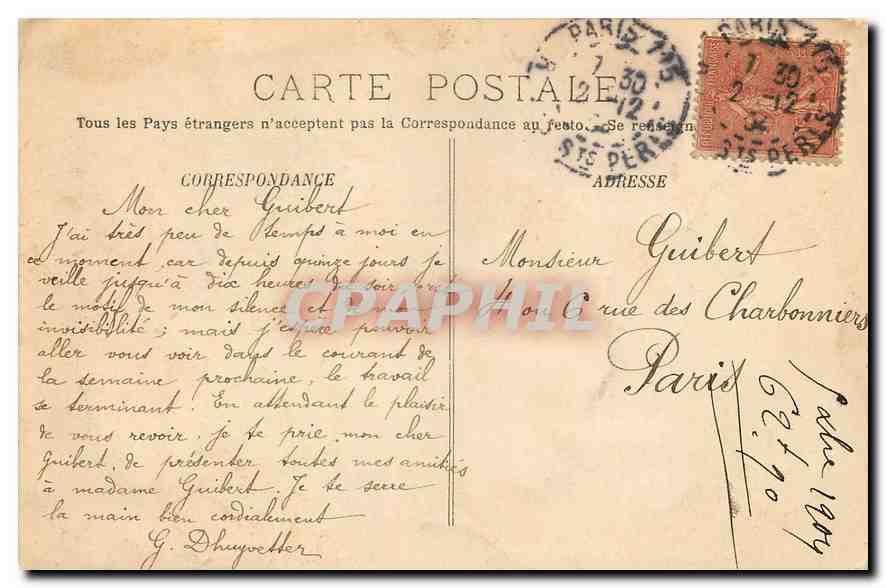 CARTE POSTALE
Tous les Pays étrangers n'acceptent pas la Correspondance au recto. Se renseign
PARIS 115
7 30
2 -12
04
Sts PERES
PARIS 115
7 30
2 -12
04
Sts PERES
CORRESPONDANCE
Mon cher Guibert
J'ai très peu de temps à moi en
ce moment, car depuis quinze jours je
veille jusqu'à dix heures du soir
le motif de mon silence et de mon
invisibilité ; mais j'espère pouvoir
aller vous voir dans le courant de
la semaine prochaine, le travail
se terminant. En attendant le plaisir
de vous revoir, je te prie, mon cher
Guibert, de présenter toutes mes amitiés
à madame Guibert. Je te serre
la main bien cordialement
G. Dhuyvetter
ADRESSE
Monsieur Guibert
4 ou 6 rue des Charbonniers
Paris
1904
CPAPHIL